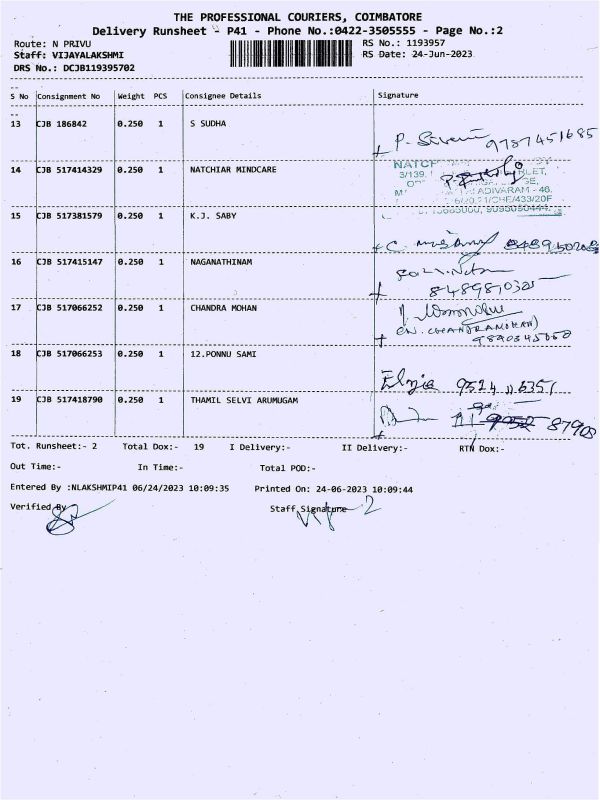 THE PROFESSIONAL COURIERS, COIMBATORE
Delivery Runsheet - P41 - Phone No.:0422-3505555 - Page No.:2
Route: N PRIVU
RS No.: 1193957
Staff: VIJAYALAKSHMI
RS Date: 24-Jun-2023
DRS No.: DCJB119395702
S No Consignment No Weight PCS Consignee Details Signature
13 CJB 186842 0.250 1 S SUDHA
9787451685
14 CJB 517414329 0.250 1 NATCHIAR MINDCARE
3/139,
ADIVARAM - 46.
15 CJB 517381579 0.250 1 K.J. SABY
C.
16 CJB 517415147 0.250 1 NAGANATHINAM
17 CJB 517066252 0.250 1 CHANDRA MOHAN
(N. CHANDRAMOHAN)
18 CJB 517066253 0.250 1 12.PONNU SAMI
19 CJB 517418790 0.250 1 THAMIL SELVI ARUMUGAM
87908
Tot. Runsheet:- 2 Total Dox:- 19 I Delivery:- II Delivery:- RTN Dox:-
Out Time:- In Time:- Total POD:-
Entered By :NLAKSHMIP41 06/24/2023 10:09:35 Printed On: 24-06-2023 10:09:44
Verified By
Staff Signature